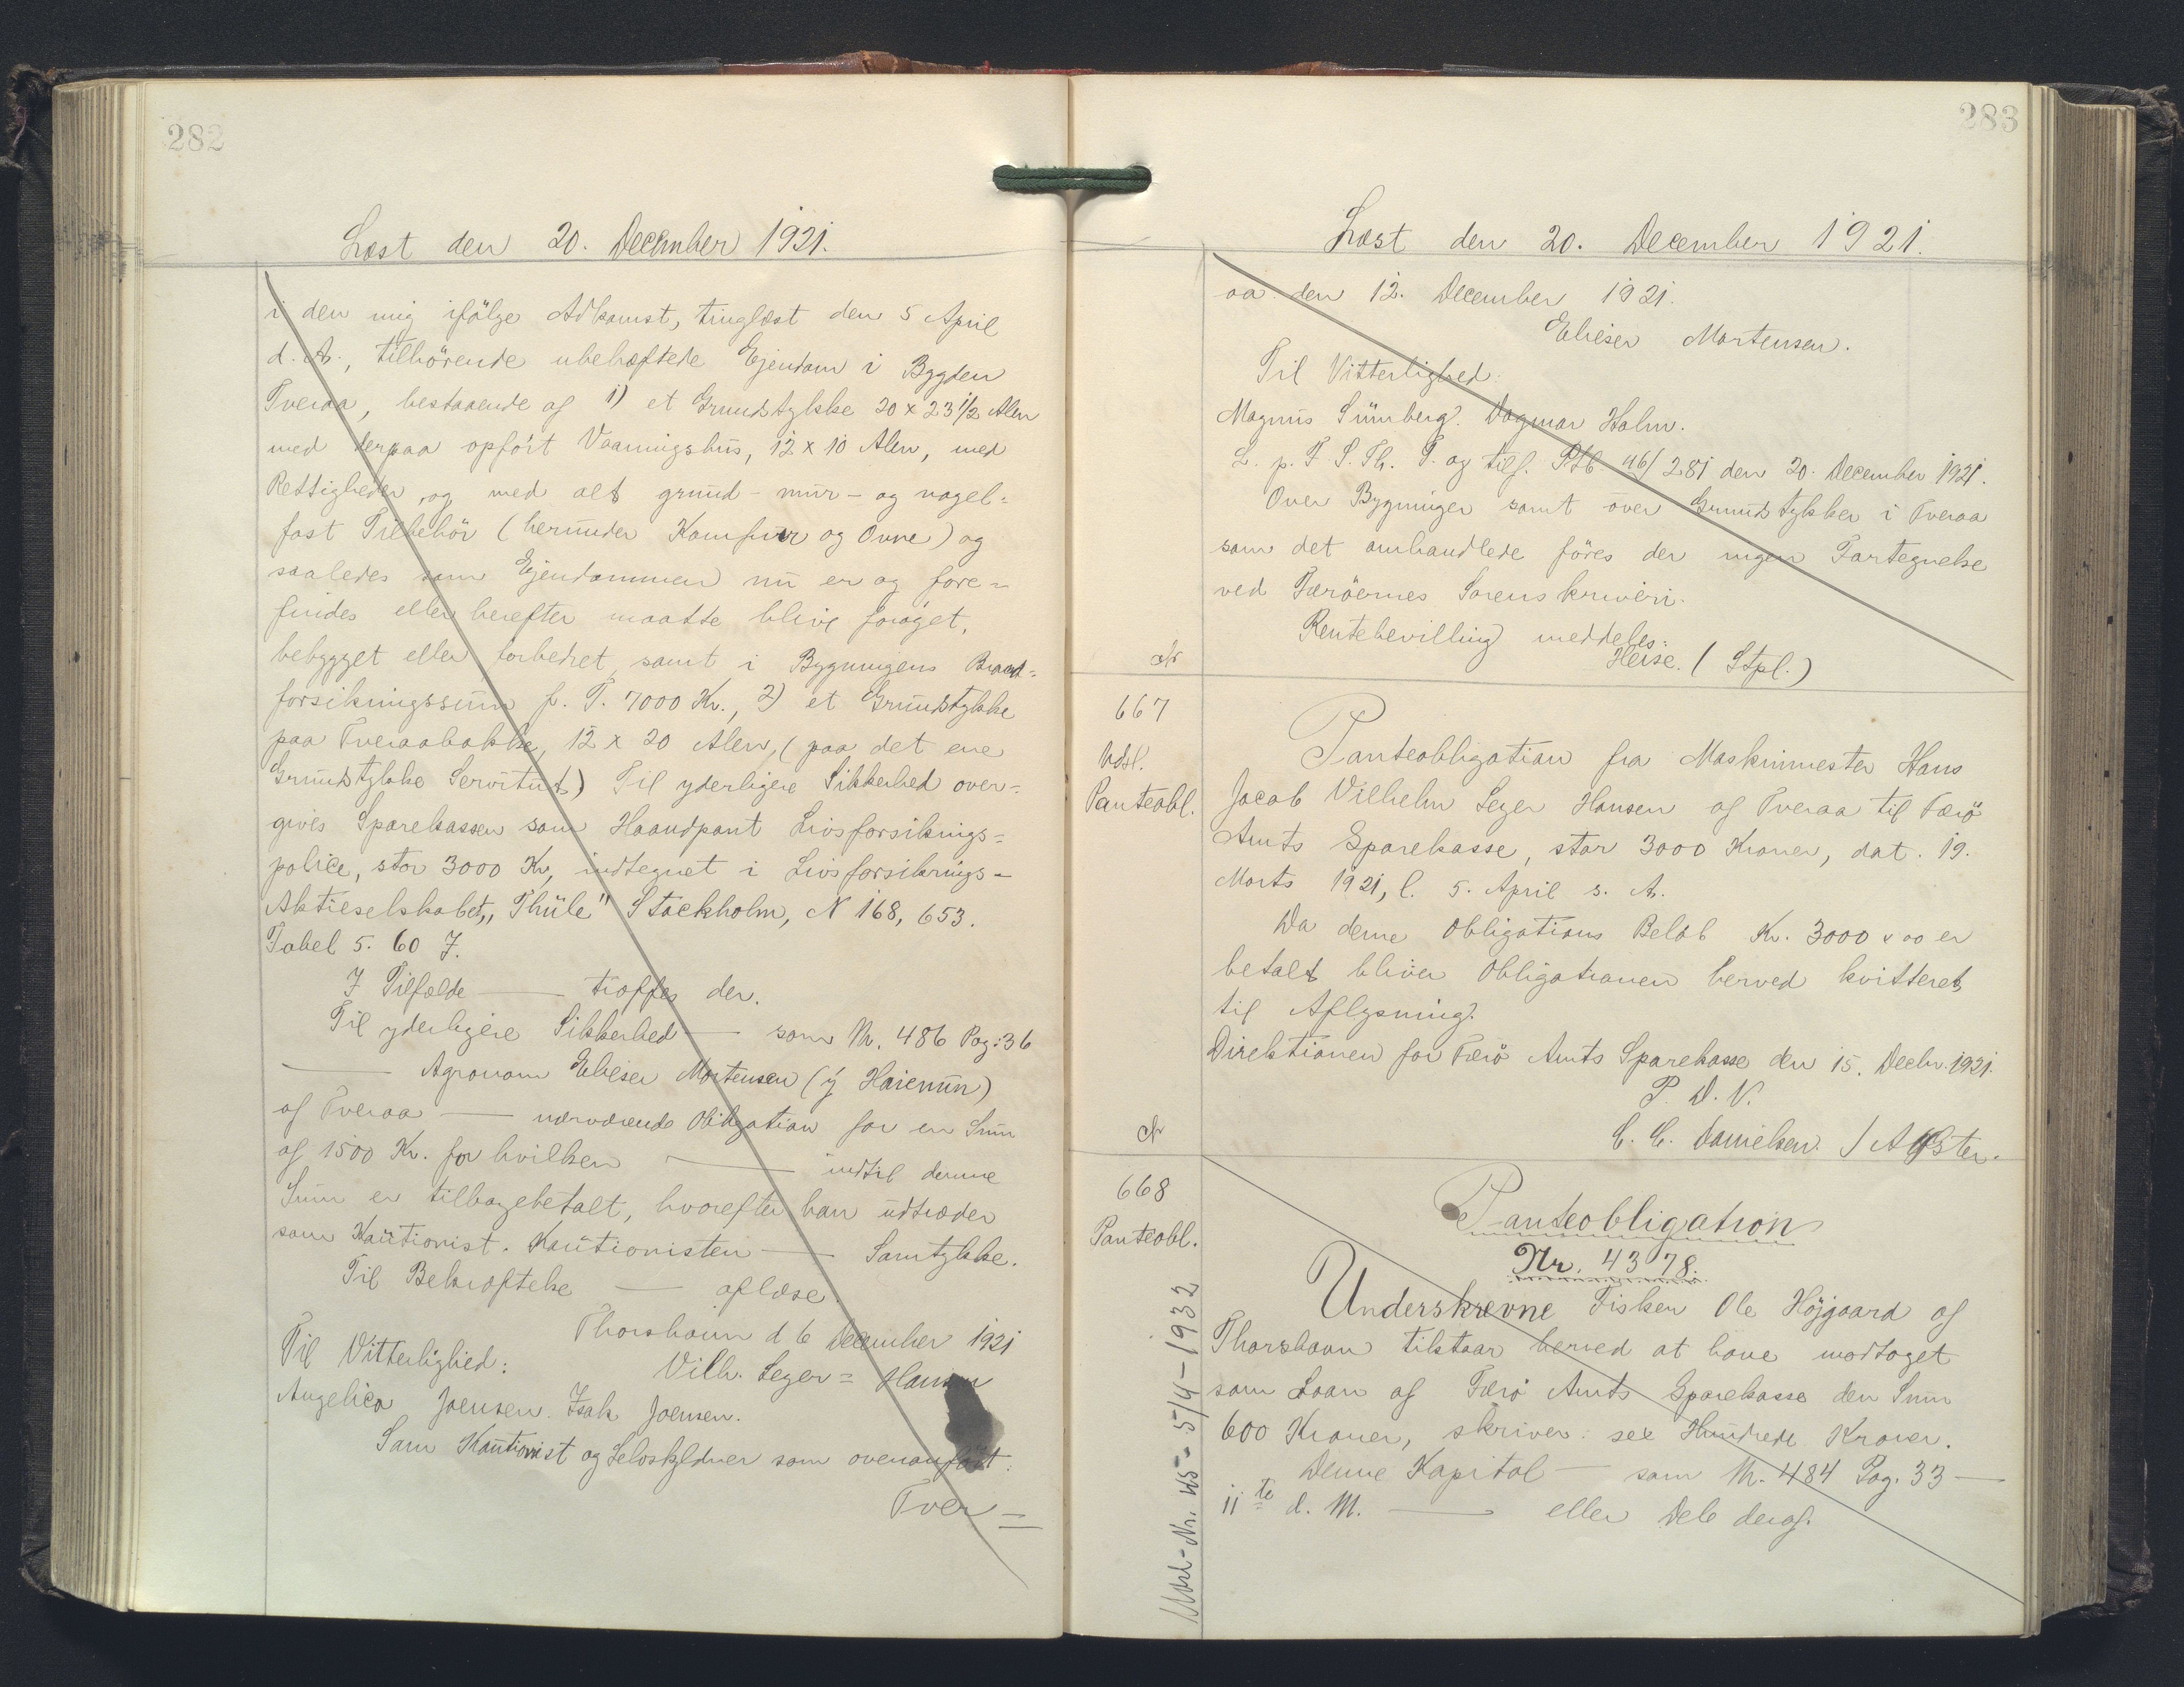 282
Læst den 20. December 1921.
i den mig ifölge Adkomst, tinglæst den 5 April
d. A., tilhörende ubehæftede Ejendom i Bygden
Tveraa, bestaaende af 1) et Grundstykke 20 x 23 1/2 Alen
med derpaa opfört Vaaningshus, 12 x 10 Alen, med
Rettigheder, og med alt grund- mur- og nagel-
fast Tilbehör (herunder Komfur og Ovne) og
saaledes som Ejendommen nu er og fore-
findes eller herefter maatte blive foröget,
bebygget eller forbedret, samt i Bygningens Brand-
forsikringssum p. T. 7000 Kr., 2) et Grundstykke
paa Tveraabakke, 12 x 20 Alen, (paa det ene
Grundstykke Servitut) Til yderligere Sikkerhed over-
gives Sparekassen som Haandpant Livsforsikrings-
police, stor 3000 Kr, indtegnet i Livsforsikrings-
Aktieselskabet „Thule" Stockholm, N 168,653.
Tabel 5. 60 J.
I Tilfælde — træffes der.
Til yderligere Sikkerhed — som Nr. 486 Pag: 36
— Agronom Elieser Mortensen (ý Haienun)
af Tveraa — nærværende Obligation for en Sum
af 1500 Kr. for hvilken — indtil denne
Sum er tilbagebetalt, hvorefter han udtræder
som Kautionist. Kautionisten — Samtykke.
Til Bekræftelse — aflæse.
Thorshavn d 6 December 1921
Til Vitterlighed: Vilh. Leger = Hansen
Angelica Joensen. Isak Joensen.
Som Kautionist og Selvskyldner som ovenanfört:
Tver=
283
Læst den 20. December 1921.
aa den 12. December 1921.
Elieser Mortensen.
Til Vitterlighed:
Magnus Sünberg. Dagmar Holm.
L. p. F. S. Th. T. og tilf. Ptb. 46/281 den 20. December 1921.
Over Bygninger samt over Grundstykker i Tveraa
som det omhandlede föres der ingen Fortegnelse
ved Færöernes Sorenskriveri.
Rentebevilling meddeles:
Heise. (Stpl.)
Nr
667
Udsl.
Panteobl.
Panteobligation fra Maskinmester Hans
Jacob Vilhelm Leger Hansen af Tveraa til Færö
Amts Sparekasse, stor 3000 Kroner, dat. 19.
Marts 1921, l. 5. April s. A.
Da denne Obligations Belöb Kr. 3000 x 00 er
betalt bliver Obligationen herved kvitteret
til Aflysning.
Direktionen for Færö Amts Sparekasse den 15. Decbr. 1921.
P. D. V.
C. C. Danielsen. /
Nr
668
Panteobl.
Panteobligation
Nr. 4378.
Underskrevne Fisker Ole Höjgaard af
Thorshavn tilstaar herved at have modtaget
som Laan af Færö Amts Sparekasse den Sum
600 Kroner, skriver: sex Hundrede Kroner.
Denne Kapital — som Nr. 484 Pag. 33 —
11 te d. M. — eller Dele deraf.
Udsl-Nr. 45 - 5/4-1932